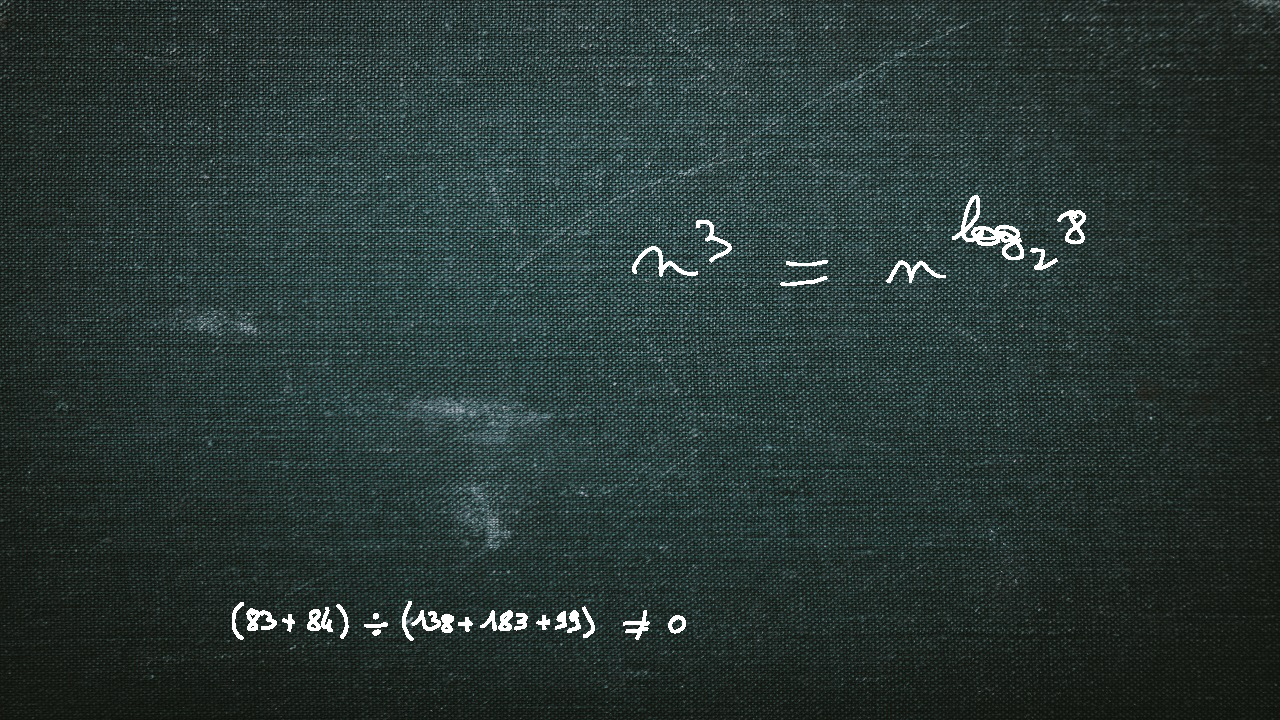 n³ = n^log₂8
(83 + 84) ÷ (138 + 183 + 99) ≠ 0